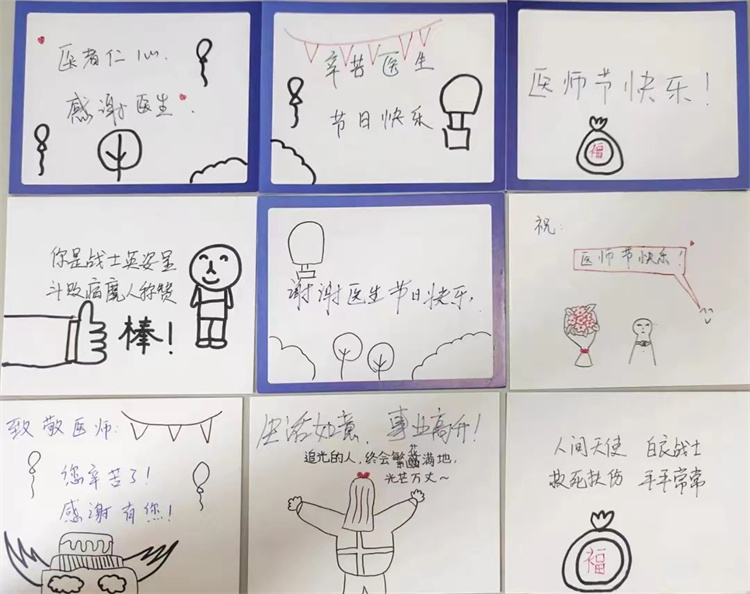 医者仁心.
感谢医生.
辛苦医生
节日快乐
医师节快乐!
福
你是战士英姿显
斗败病魔人称赞
棒!
谢谢医生节日快乐,
祝:
医师节快乐!
致敬医师:
您辛苦了!
感谢有您!
生活如意,事业高升!
追光的人,终会繁花满地,
光芒万丈~
人间天使 白衣战士
救死扶伤 平平常常
福